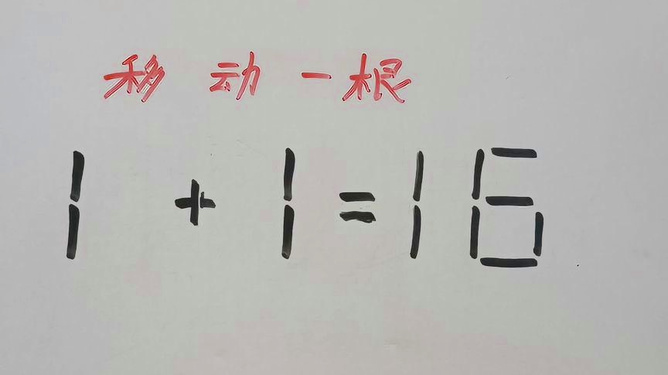 移动一根
1 + 1 = 16